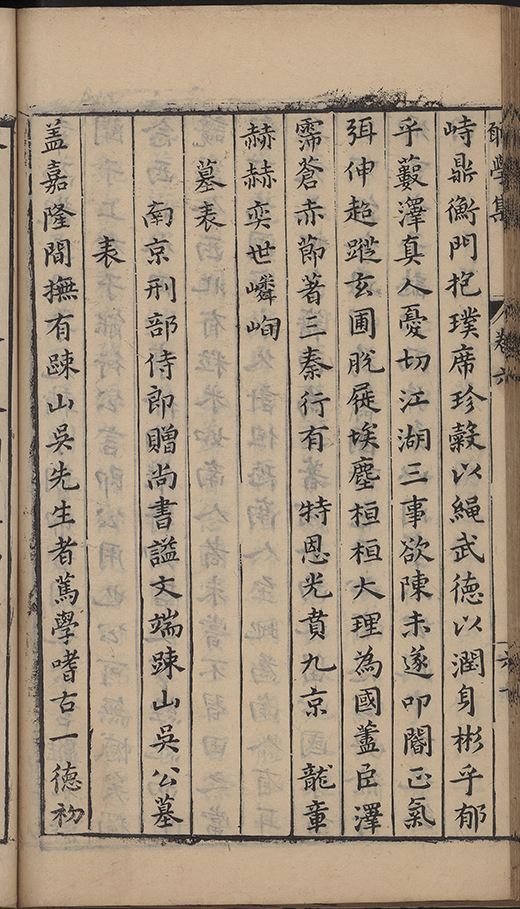 學集 卷六
峙鼎衡門抱璞席珍穀以繩武德以潤身彬乎郁
乎藪澤真人憂切江湖三事欲陳未遂叩閽正氣
弭伸超蹤玄圃脫屣埃塵桓桓大理為國藎臣澤
霈蒼赤節著三秦行有 特恩光賁九京 龍章
赫赫奕世嶙峋
墓表
南京刑部侍郎贈尚書謚文端踈山吳公墓
表
盖嘉隆間撫有踈山吳先生者篤學嗜古一德初